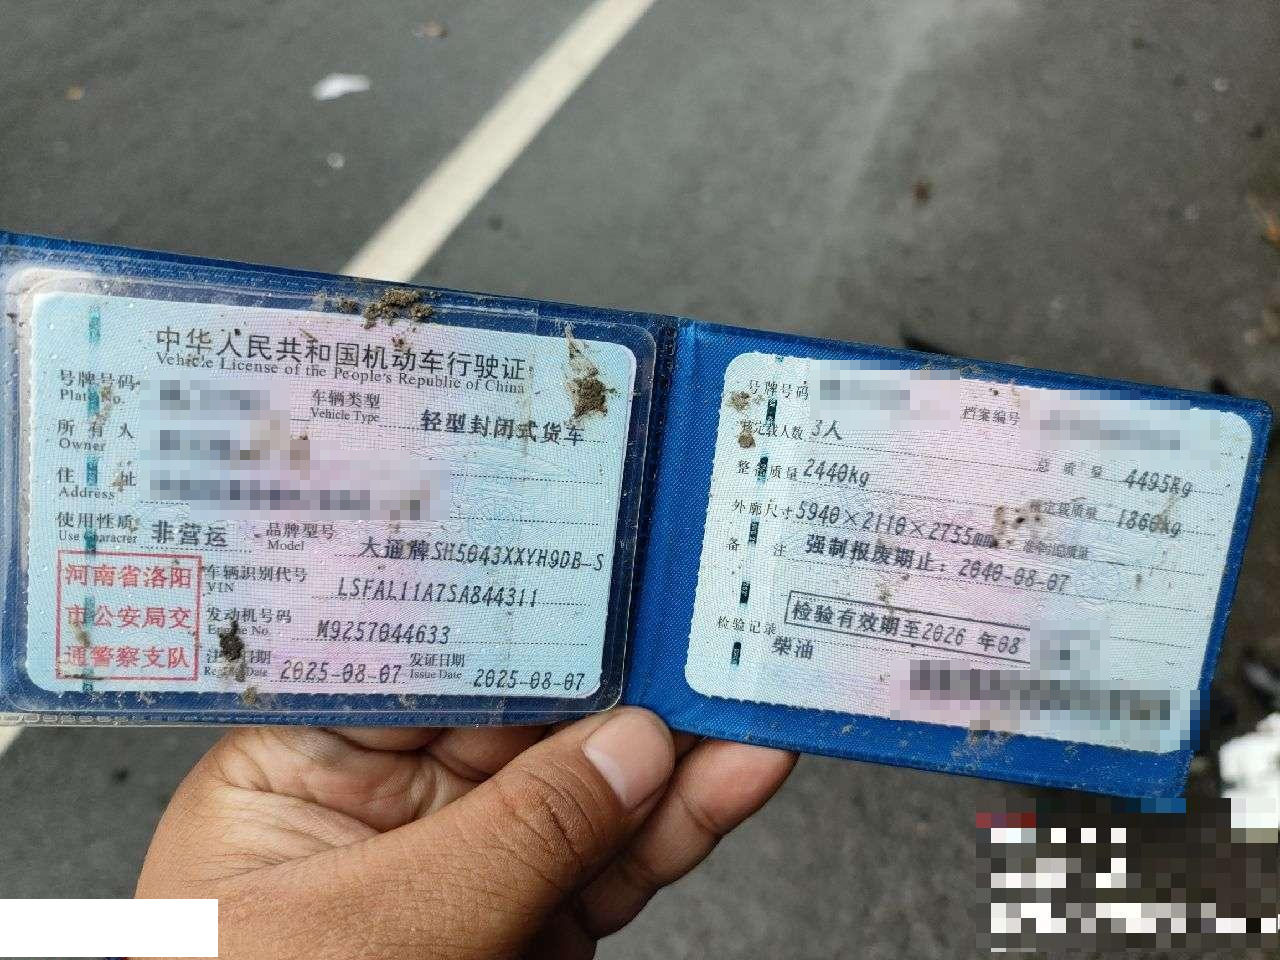 中华人民共和国机动车行驶证
Vehicle License of the People's Republic of China
号牌号码
Plate No.
车辆类型
Vehicle Type
轻型封闭式货车
所有人
Owner
住址
Address
使用性质
Use Character
非营运
品牌型号
Model
大通牌SH5043XXYH9DB-S
河南省洛阳
市公安局交
通警察支队
车辆识别代号
VIN
LSFAL11A7SA844311
发动机号码
Engine No.
M9257044633
注册日期
Register Date
2025-08-07
发证日期
Issue Date
2025-08-07
号牌号码
档案编号
核定载人数
3人
总质量
4495kg
整备质量
2440kg
核定载质量
1860kg
外廓尺寸
5940×2110×2755mm
准牵引总质量
备注
强制报废期止：2040-08-07
检验有效期至2026 年08
检验记录
柴油